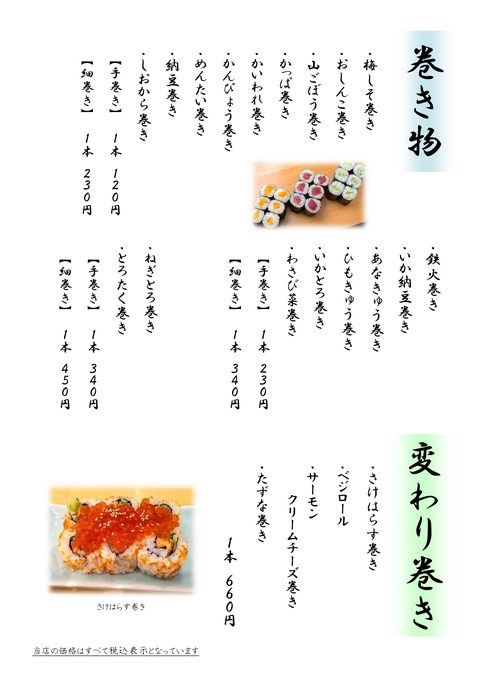 巻き物
・梅しそ巻き
・おしんこ巻き
・山ごぼう巻き
・かっぱ巻き
・かいわれ巻き
・かんぴょう巻き
・めんたい巻き
・納豆巻き
・しおから巻き
【手巻き】 1本 120円
【細巻き】 1本 230円
・鉄火巻き
・いか納豆巻き
・あなきゅう巻き
・ひもきゅう巻き
・いかとろ巻き
・わさび菜巻き
【手巻き】 1本 230円
【細巻き】 1本 340円
・ねぎとろ巻き
・とろたく巻き
【手巻き】 1本 340円
【細巻き】 1本 450円
変わり巻き
・さけはらす巻き
・ベジロール
・サーモン
クリームチーズ巻き
・たずな巻き
1本 660円
さけはらす巻き
当店の価格はすべて税込表示となっています